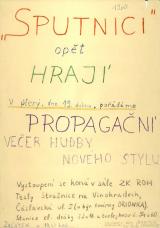 1960
„SPUTNICI"
opět
HRAJÍ
V úterý, dne 19. dubna, pořádáme
PROPAGAČNÍ
VEČER HUDBY
NOVÉHO STYLU
Vystoupení se koná v sále ZK ROH
Tesly Strašnice na Vinohradech,
Čáslavská ul. 3 (býv. kino ORIONKA),
Stanice el. dráhy
ZAČÁTEK v